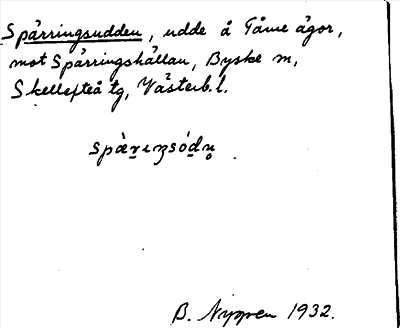 Spärringsudden, udde å Gåme ägor,
mot Spärringshällan, Byske m,
Skellefteå tg, Västerb. l.
B. Nygren 1932.